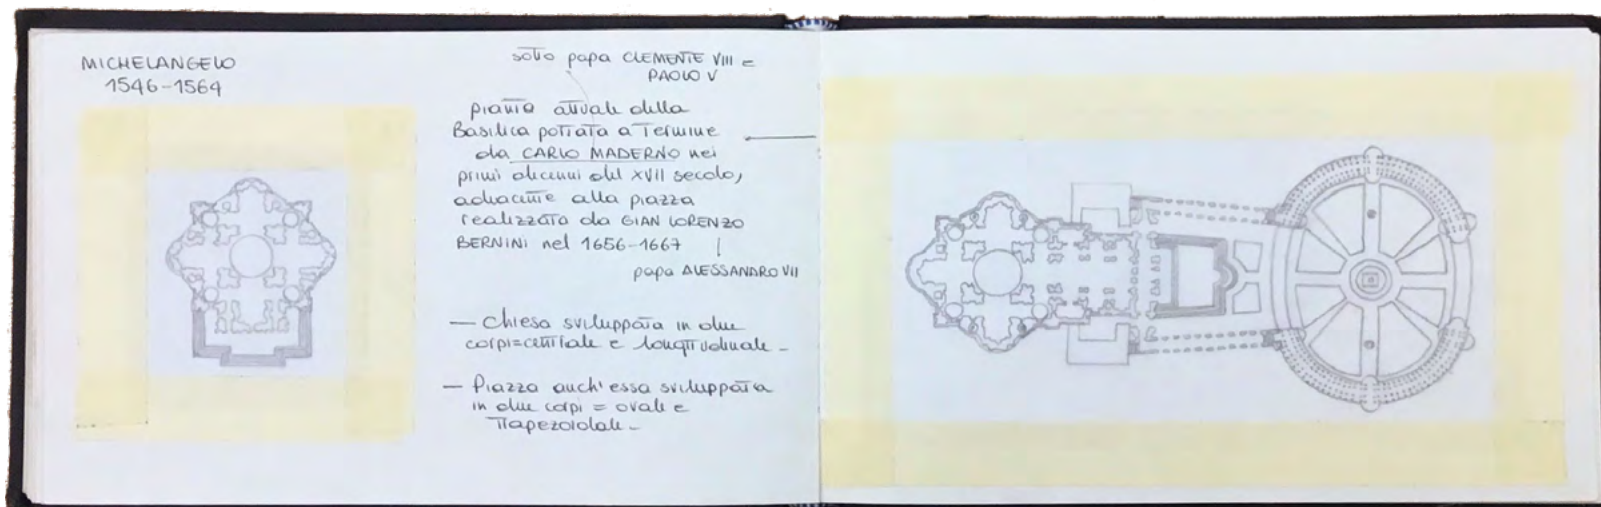 MICHELANGELO
1546-1564
sotto papa CLEMENTE VIII e
PAOLO V
pianta attuale della
Basilica portata a termine
da CARLO MADERNO nei
primi decenni del XVII secolo,
adiacente alla piazza
realizzata da GIAN LORENZO
BERNINI nel 1656-1667
papa ALESSANDRO VII
— Chiesa sviluppata in due
corpi=centrale e longitudinale -
— Piazza anch'essa sviluppata
in due corpi = ovale e
trapezoidale -